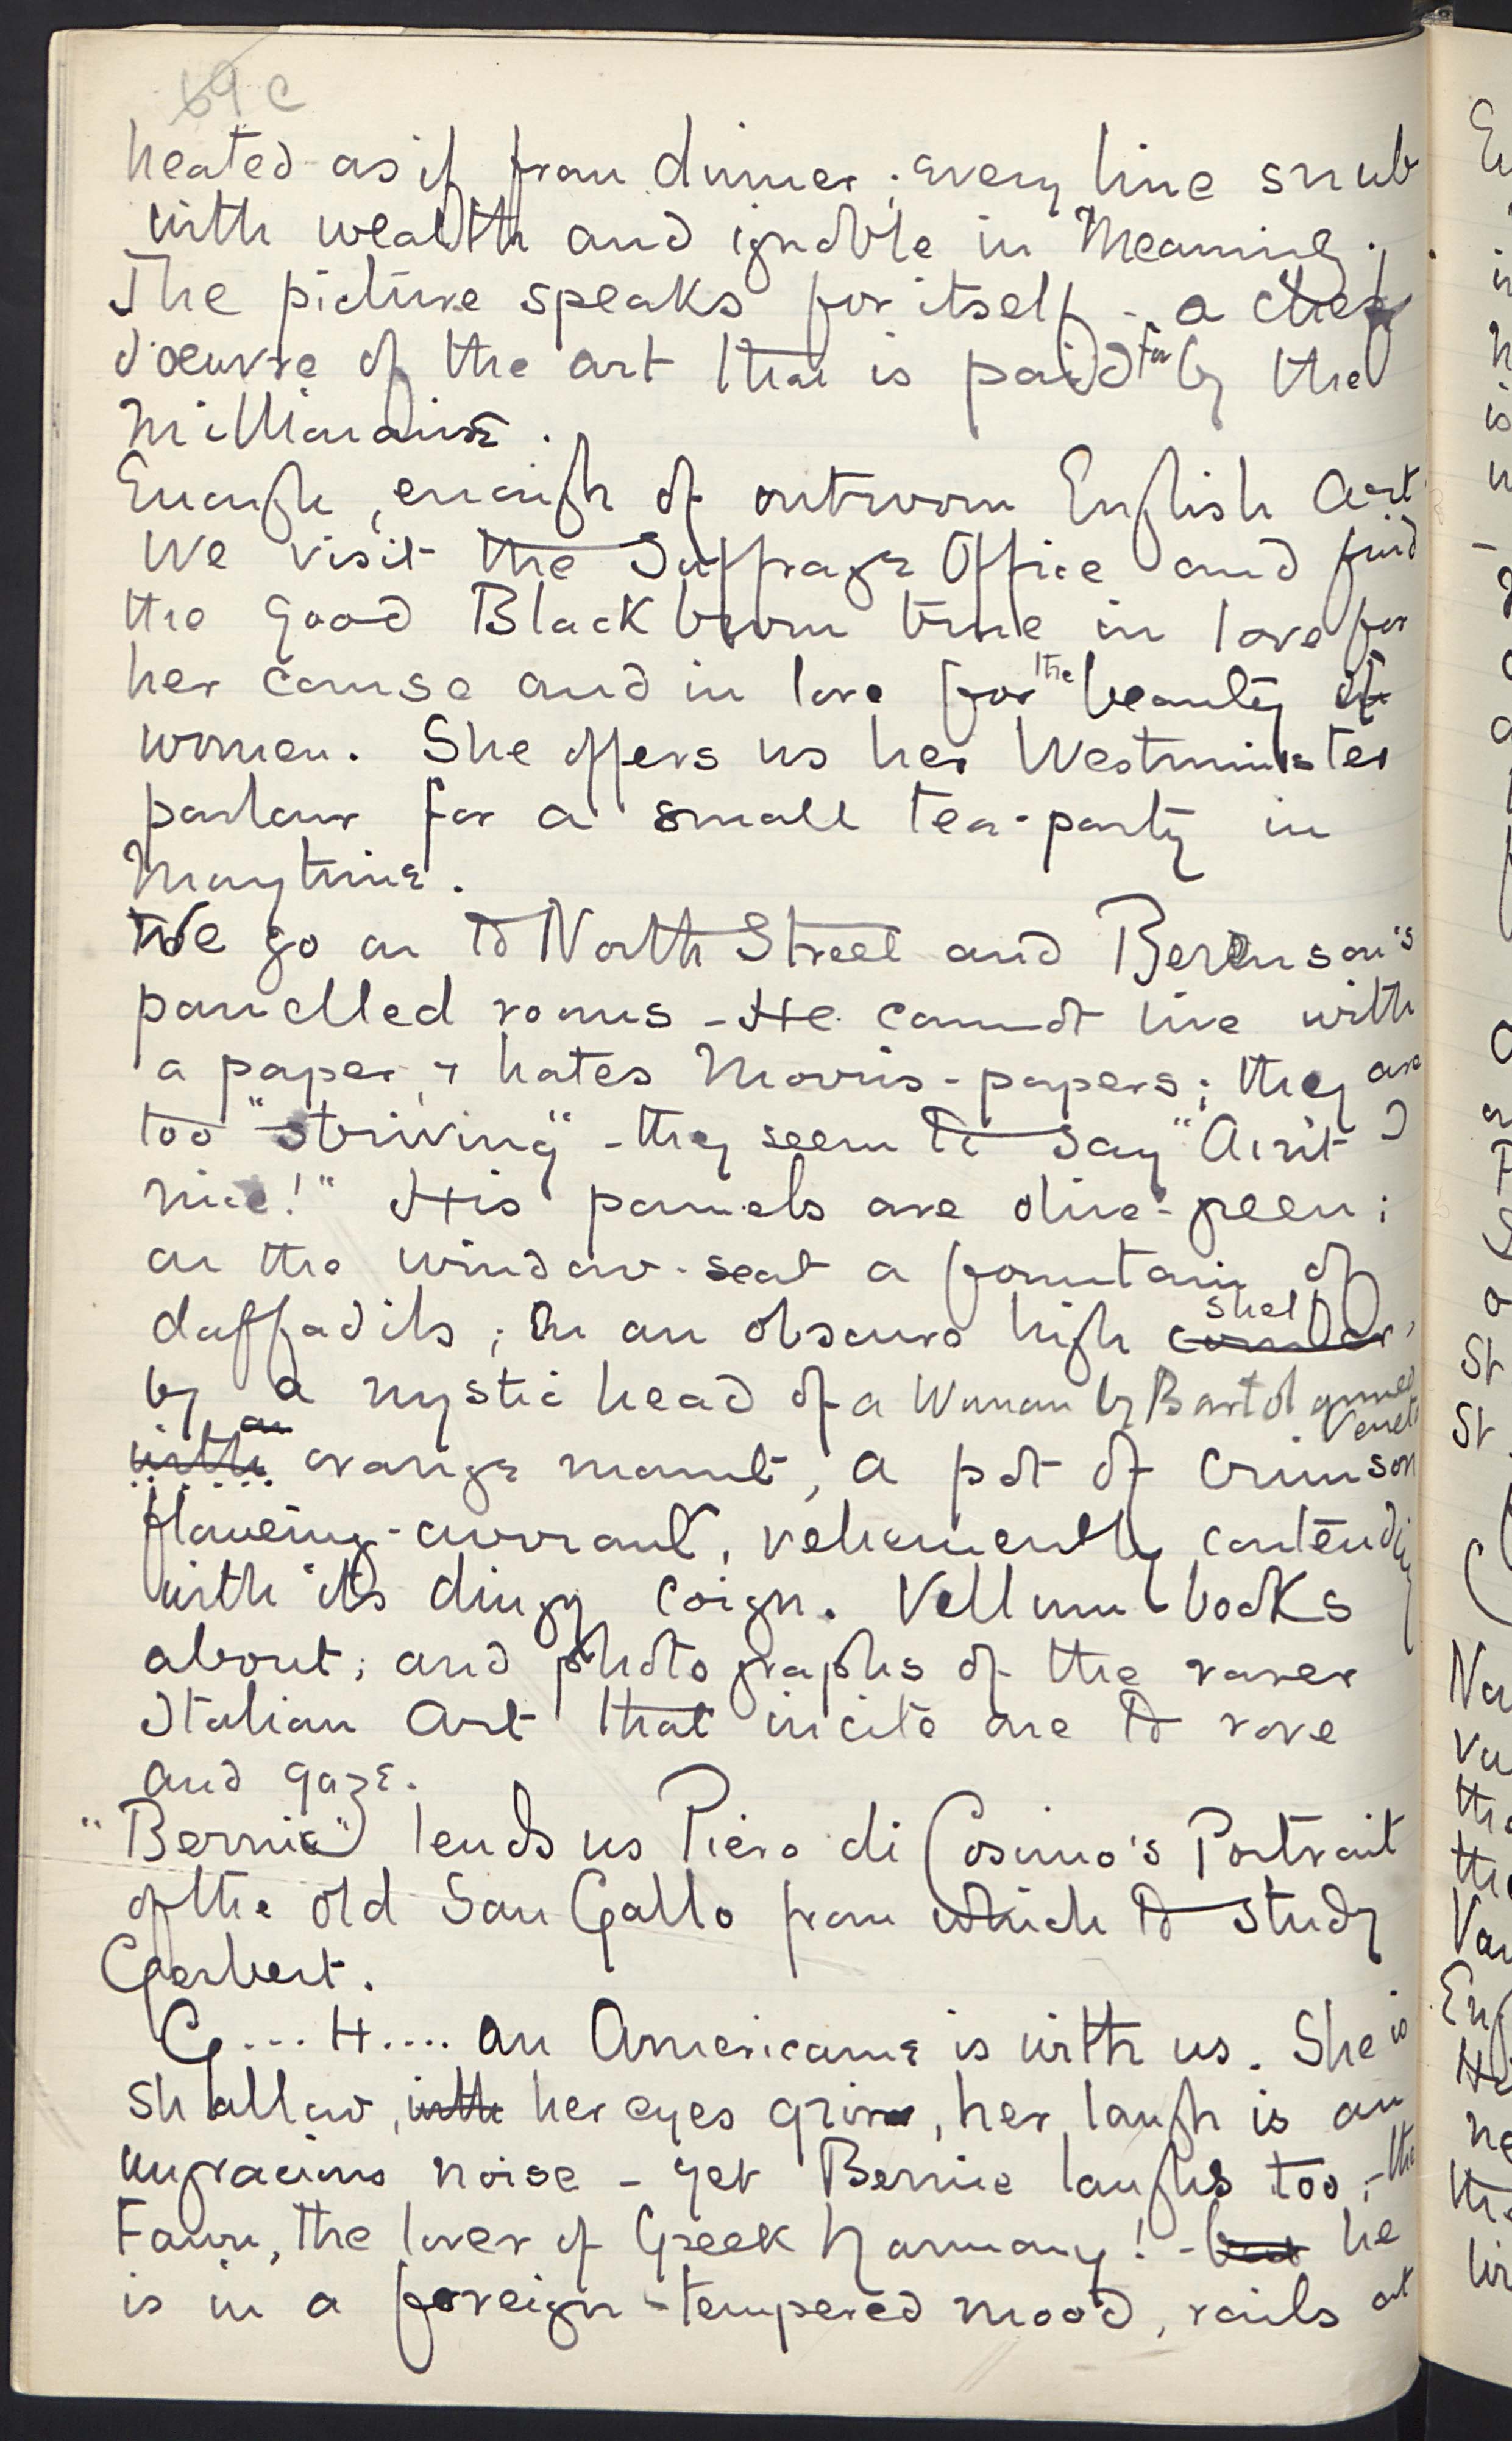 69 c
heated as if from dinner; every line snub
with wealth and ignoble in meaning.
The picture speaks for itself - a chef
d'oeuvre of the art that is paid for by the
millionaire.
Enough, enough of outworn English Art.
We visit the Suffrage Office and find
the good Blackburn true in love for
her cause and in love for the beauty of
women. She offers us her Westminster
parlour for a small tea-party in
Maytime.
We go on to North Street and Berenson's
panelled rooms - He cannot live with
a paper, & hates Morris-papers; they are
too "striving" - they seem to say "Ain't I
nice!" His panels are olive-green;
on the window-seat a fountain of
daffadils; On an obscure high corner shelf,
by a mystic head of a Woman by Bartolommeo
Veneto
with an orange mount, a pot of crimson
flowering-currant, vehemently contending
with its dingy coign. Vellum books
about; and photographs of the rarer
Italian Art that incite one to rove
and gaze.
"Bernie" lends us Piero di Cosimo's Portrait
of the old San Gallo from which to study
Gerbert.
G... H.... an Americaine is with us. She is
shallow, with her eyes grim, her laugh is an
ungracious noise - yet Bernie laughs too, - the
Faun, the lover of Greek harmony! - but he
is in a foreign-tempered mood, rails at